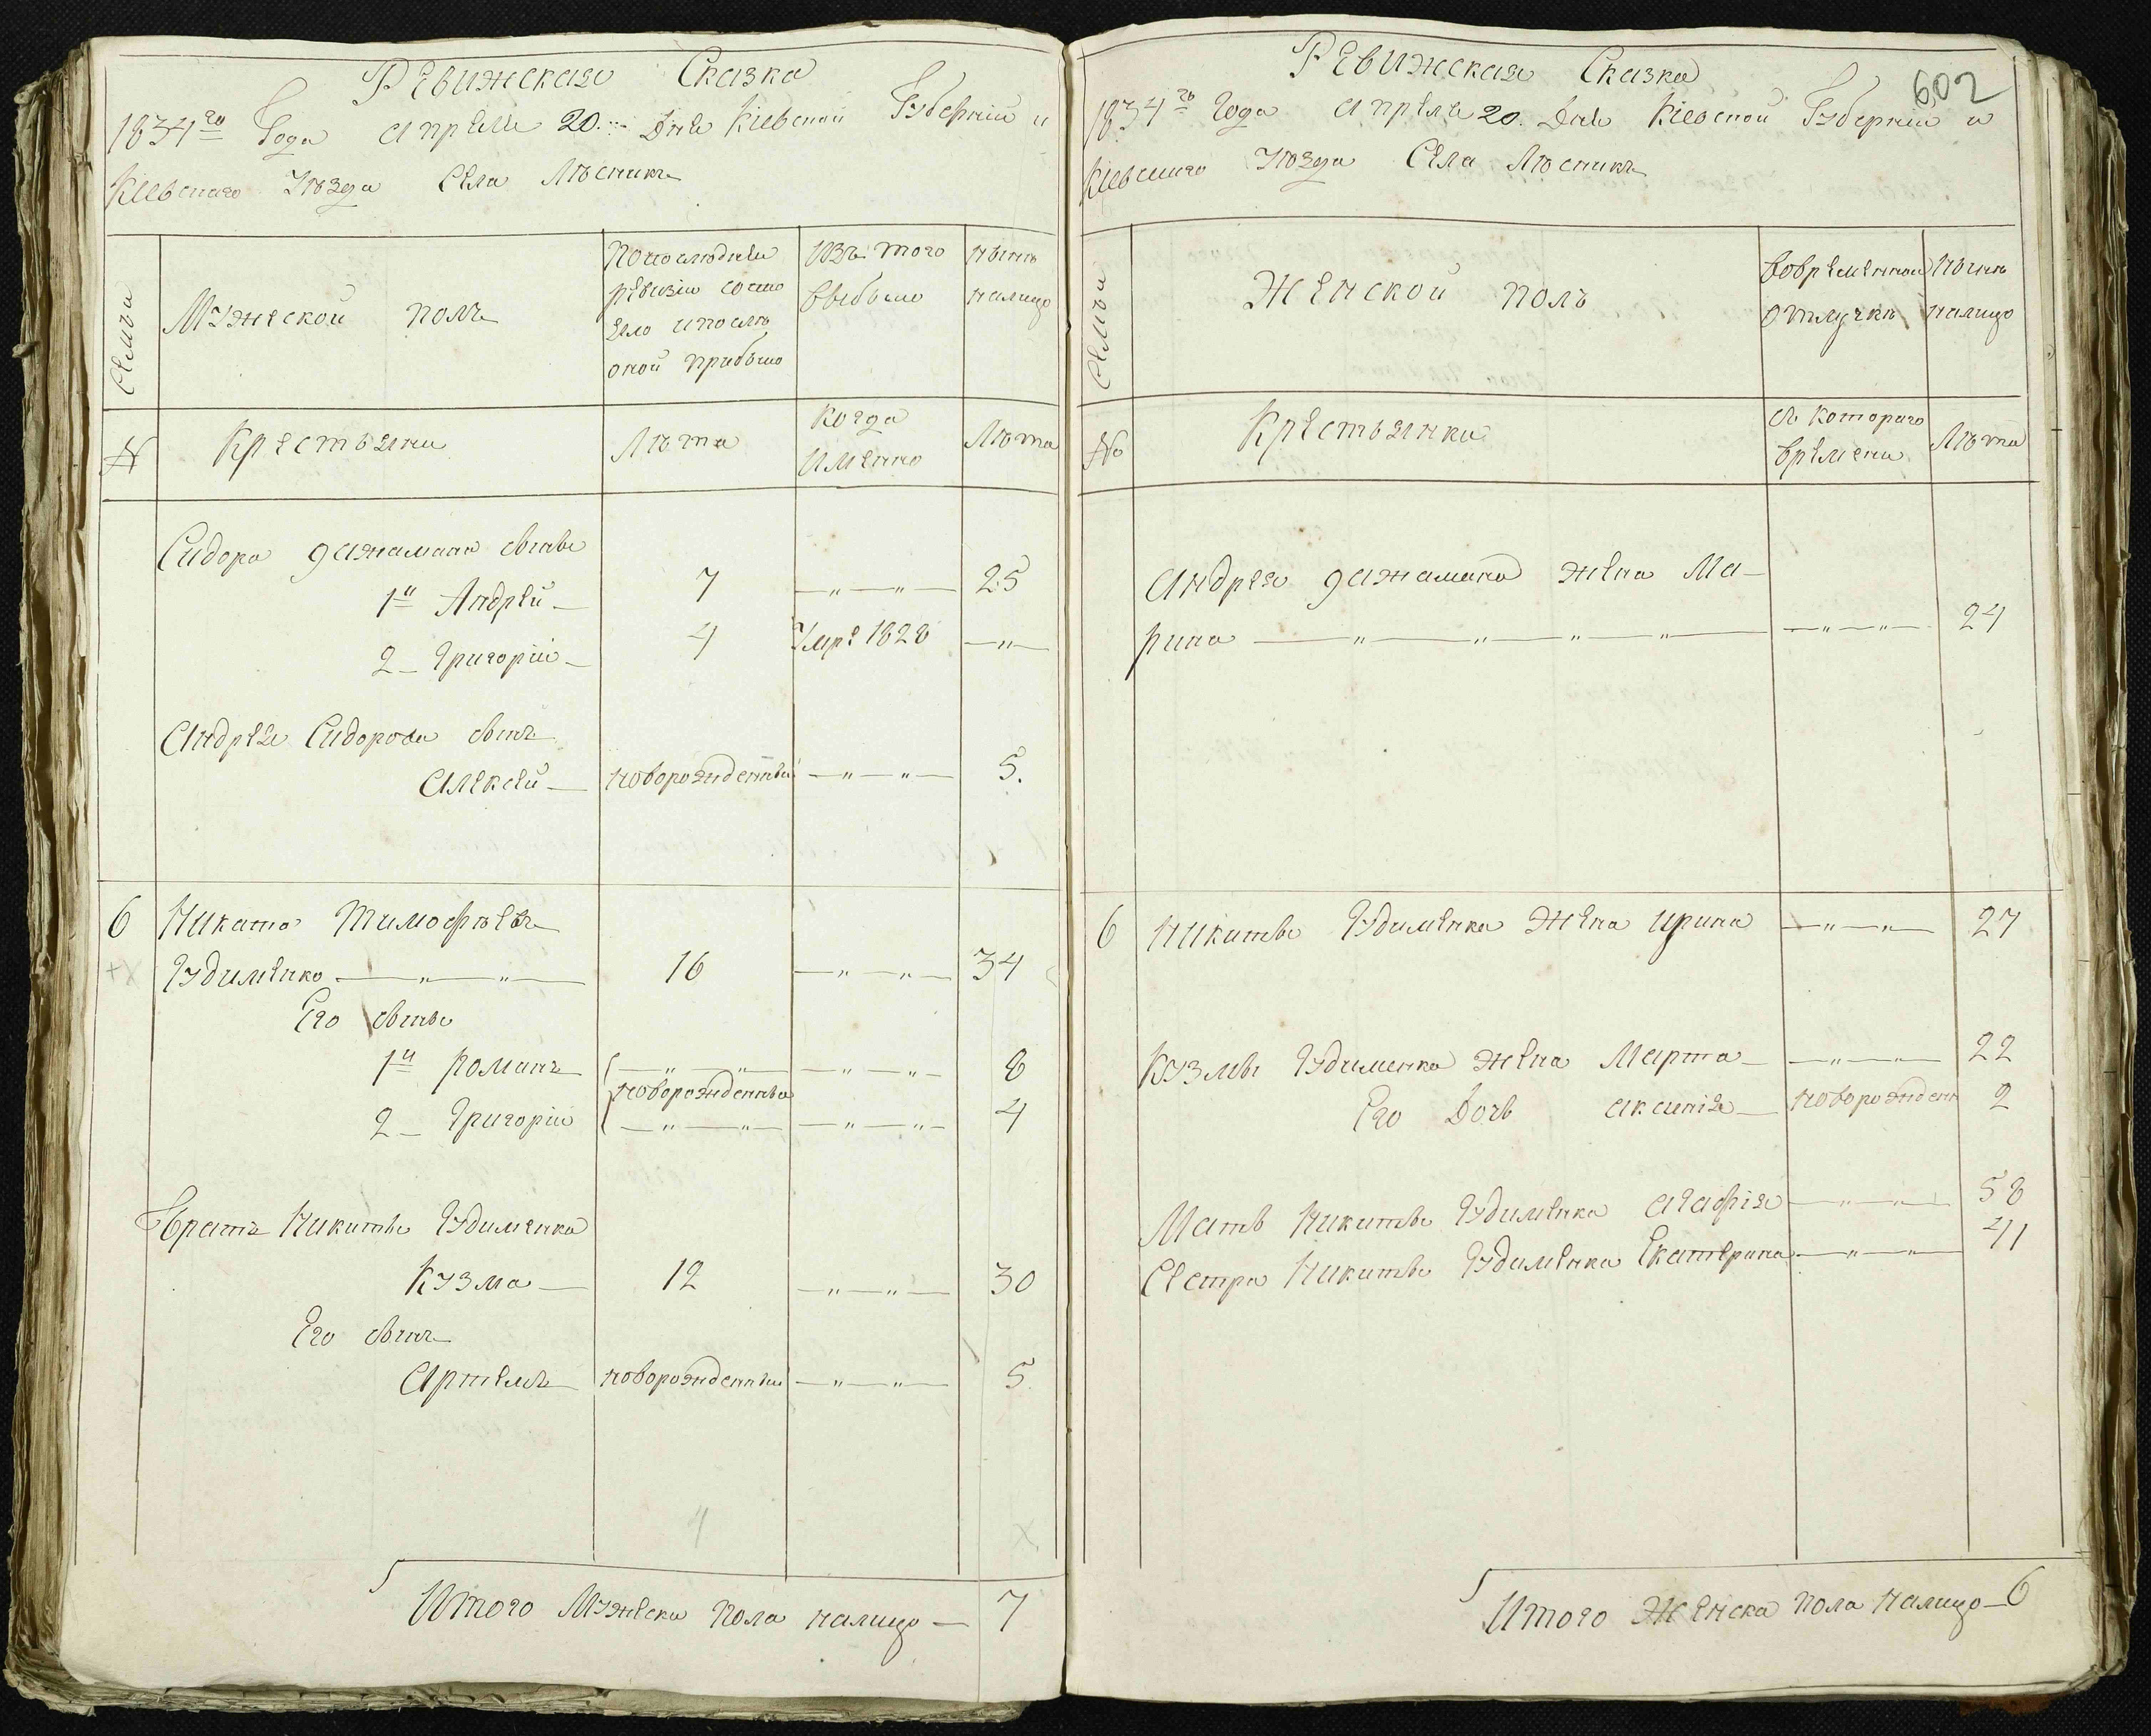 Ревижская Сказка
1834го Года апреля 20. Дня Кіевской Губерніи и
Кіевскаго Уѣзда Села Лѣсникъ
Семьи
Мужеской полъ
По последней
ревизіи состо
яло и послѣ
оной прибыло
Изъ того
выбыло
Нынѣ
налицо
№
Крестьяни
Лѣта
Когда
Именно
Лѣта
Сидора сыны
1й Андрей 7 —„—„— 25
2 — Григорій — 4 Умре 1828 —„—
Андрея Сидорова сынъ
Алексей — новорожденный —„—„— 5.
6 Никита Тимофѣевъ
Гудименко —„—„— 16 —„—„— 34
Его сыны
1й Романъ —„—„— —„—„— 8
новорожденны
2 — Григорій —„—„— —„—„— 4
Братъ Никиты Гудименка
Кузма — 12 —„—„— 30
Его сынъ
Артемъ новорожденный —„—„— 5
4
Итого Мужеска пола налицо — 7
602
Ревижская Сказка
1834го Года апреля 20. Дня Кіевской Губерніи и
Кіевскаго Уѣзда Села Лѣсникъ
Семьи
Женской полъ
Вовременной
отлучкѣ
Нынѣ
налицо
№
Крестьянки
Съ котораго
времени
Лѣта
Андрея жена Ма-
рина —„—„—„—„— —„—„— 24
6 Никиты Гудименка жена Ирина —„—„— 27
Кузмы Гудименка жена Марта — —„—„— 22
Его Дочь Аксинія — новорожден 2
Мать Никиты Гудименка Агафія —„—„— 58
Сестра Никиты Гудименка Екатерина —„—„— 41
Итого Женска пола налицо — 6